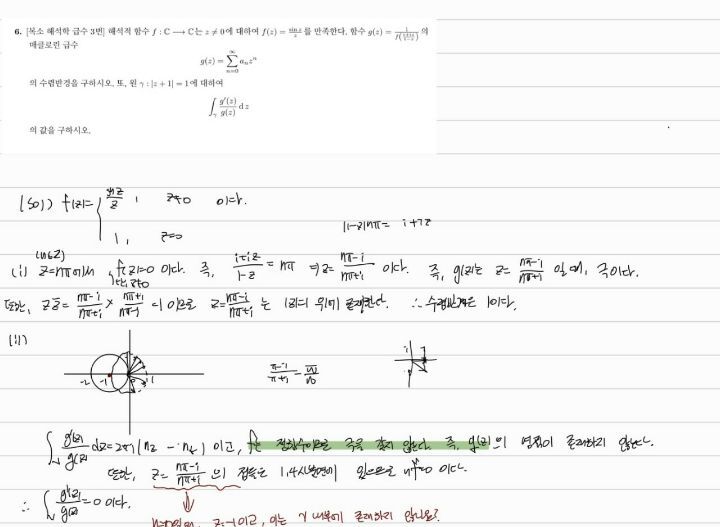 6. [복소 해석학 급수 3번] 해석적 함수 f : ℂ → ℂ는 z ≠ 0에 대하여 f(z) = sin z / z 를 만족한다. 함수 g(z) = 1 / f((i+iz)/(1-z)) 의
매클로린 급수
g(z) = ∑_{n=0}^{∞} a_n z^n
의 수렴반경을 구하시오. 또, 원 γ : |z + 1| = 1에 대하여
∫_γ g'(z)/g(z) dz
의 값을 구하시오.
(sol) f(z)= { sin z / z , z≠0 이다.
1, z=0
(1-z)nπ = i+iz
(n∈Z)
(i) z=nπ에서 f(z)=0 이다. 즉, (i+iz)/(1-z) = nπ ⇒ z= (nπ-i)/(nπ+i) 이다. 즉, g(z)는 z= (nπ-i)/(nπ+i) 일 때, 극이다.
또한, z z̄ = (nπ-i)/(nπ+i) × (nπ+i)/(nπ-i) =1 이므로 z= (nπ-i)/(nπ+i) 는 |z|=1 위에 존재한다. ∴ 수렴반경은 1이다.
(ii)
-2 -1 0 1
(π-i)/(π+i) =
∫_γ g'(z)/g(z) dz=2πi(n_z - n_p) 이고, f는 정함수이므로 극을 갖지 않는다. 즉, g(z)의 영점이 존재하지 않는다.
또한, z= (nπ-i)/(nπ+i) 의 점들은 1,4사분면에 있으므로 =0 이다.
∴ ∫_γ g'(z)/g(z) =0 이다.
z=-1이고, 이는 γ 내부에 존재하지 않나요?